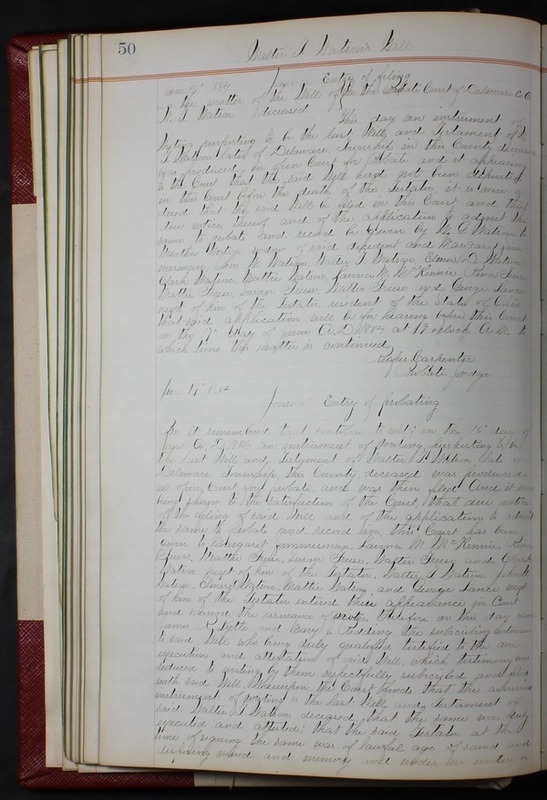 50
Walter T Watson's Will
June 14" 1884 Journal Entry of filing
In the matter of the Will of In the Probate Court of Delaware Co. O.
W. T. Watson deceased
This day an instrument of
writing purporting to be the last Will and Testament of W.
T. Watson late of Delaware Township in this County deceased
was produced in open Court for probate and it appearing
to the Court that the said Will had not been deposited
in this Court before the death of the Testator, it is now or
dered that the said Will be filed in this Court and that
due notice thereof and of the application to admit the
same to probate and record be given by W. T. Watson to
widow of said decedent and Margaret Zim
merman, John Watson, Walter T Watson, Elmer D. Watson,
Clark Watson, Mattie Watson, Laurna M. McKinnie,
Mattie Freese, Susan Freese, Walter Freese and George Lance
next of kin of the Testator resident of the State of Ohio
that said application will be for hearing before this Court
on the 17" day of June A.D. 1884 at 10 oclock A.M. to
which time the matter is continued
Carpenter
Probate Judge
June 17" 1884
Journal Entry of probating
Be it remembered that heretofore to wit: on the 14" day of
June A.D. 1884 an instrument of writing purporting to be
the last Will and Testament of Walter T. Watson late of
Delaware Township this County, deceased was produced
in open Court for probate and was then filed And it now
being shown to the satisfaction of the Court, that due notice
of the filing of said Will and of the application to admit
the same to probate and record in this Court has been
given to Margaret Zimmerman, Laurna M. McKinnie,
Freese, Mattie Freese, Susan Freese, Walter Freese and Clark
Watson next of kin of the Testator. Walter T Watson, John
Watson, Elmer Watson, Mattie Watson and George Lance next
of kin of the Testator entered their appearance in Court
and waived the issuance of notice. Therefore on this day came
James R. and Mary J. Redding the subscribing witnesses
to said Will who being duly qualified testified to the due
execution and attestation of said Will, which testimony was
reduced to writing by them respectfully subscribed and filed
with said Will. Whereupon the Court finds that the aforesaid
instrument of writing is the last Will and Testament of
said Walter T Watson deceased, that the same was duly
executed and attested: that the said Testator at the
time of signing the same was of lawful age, of sound and
disposing mind and memory and under no undue or